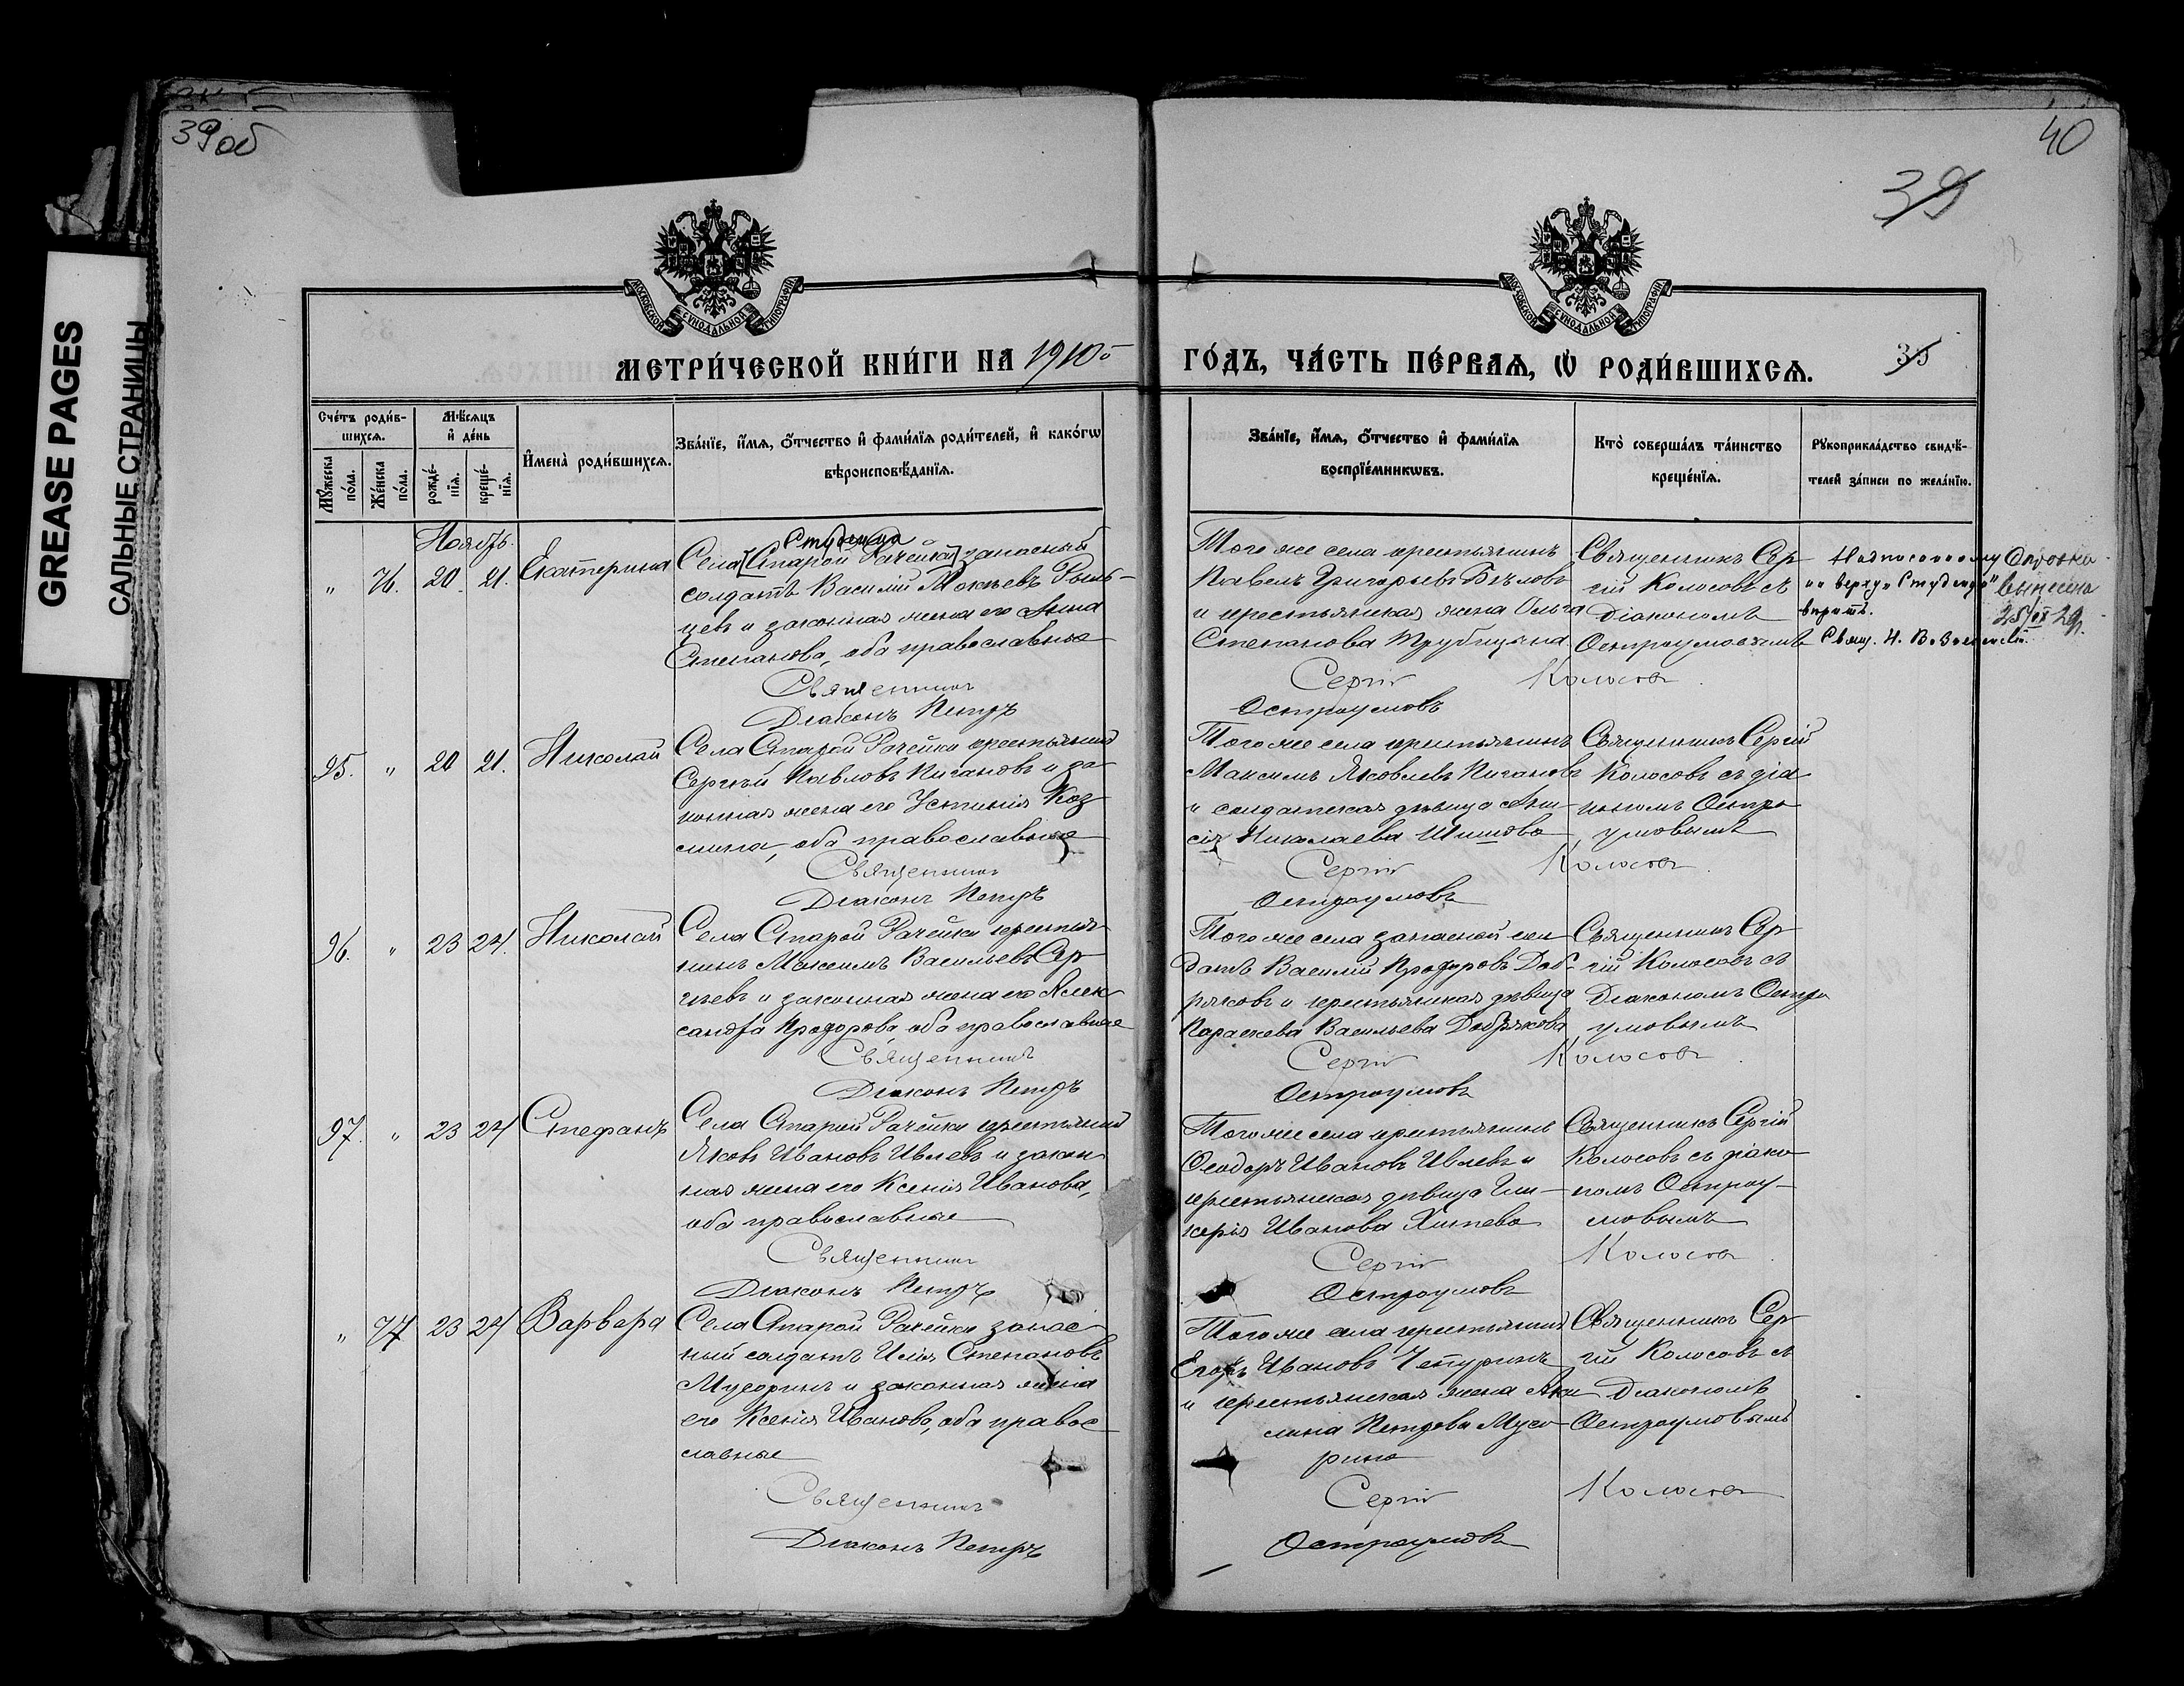 39 об
40
39
GREASE PAGES
САЛЬНЫЕ СТРАНИЦЫ
МОСКОВСКОЙ СѴНОДАЛЬНОЙ ТИПОГРАФІИ
МОСКОВСКОЙ СѴНОДАЛЬНОЙ ТИПОГРАФІИ
МЕТРИ́ЧЕСКОЙ КНИ́ГИ НА 1910
ГО́ДЪ, ЧА́СТЬ ПЕ́РВАѦ, Ѡ РОДИ́ВШИХСѦ.
Сче́тъ роди́в-
шихсѧ.
Мꙋ́жеска по́ла.
Же́нска по́ла.
Мѣ́сѧцъ
и҆ де́нь
рожде́-
нїѧ.
креще́-
нїѧ.
И҆мена̀ роди́вшихсѧ.
Зва́нїе, и҆́мѧ, ѻ҆́тчество и҆ фами́лїѧ роди́телей, и҆ како́гѡ
вѣроисповѣ́данїѧ.
Зва́нїе, и҆́мѧ, ѻ҆́тчество и҆ фами́лїѧ
воспрїе́мникѡвъ.
Кто̀ соверша́лъ та́инство
креще́нїѧ.
Рꙋкоприкла́дство свидѣ́-
телей за́писи по жела́нїю.
Ноябрь.
" 76. 20. 21. Екатерина
Студенца
Села [Старой Рачейки] запасный
солдатъ Василій Мокѣевъ
цевъ и законная жена его Анна
Степанова, оба православные
Священникъ
Діаконъ Петръ
Того же села крестьянинъ
Павелъ Григорьевъ Бѣловъ
и крестьянская жена Ольга
Степанова Трубицына
Сергій Колосовъ
Остроумовъ
Священникъ Сер-
гій Колосовъ съ
Діакономъ
Остроумовымъ
Надписанному
на верху "Студенца"
вѣрить.
Свящ. Н.
Справка
вынесена
95. " 20 21. Николай
Села Старой Рачейки крестьянинъ
Сергѣй Павловъ Пигановъ и за-
конная жена его Устинія Коз-
мина, оба православные
Священникъ
Діаконъ Петръ
Того же села крестьянинъ
Максимъ Яковлевъ Пигановъ
и солдатская дѣвица Ани-
сія Николаева Шишова
Сергій Колосовъ
Остроумовъ
Священникъ Сергій
Колосовъ съ діа-
кономъ Остро-
умовымъ
96. " 23 24. Николай
Села Старой Рачейки крестья-
нинъ Максимъ Васильевъ Сер-
гѣевъ и законная жена его Алек-
сандра Прохорова оба православные
Священникъ
Діаконъ Петръ
Того же села запасной сол-
датъ Василій Прохоровъ Доб-
ряковъ и крестьянская дѣвица
Параскева Васильева Добрякова
Сергій Колосовъ
Остроумовъ
Священникъ Сер-
гій Колосовъ съ
Діакономъ Остро-
умовымъ
97. " 23 24 Стефанъ
Села Старой Рачейки крестьянинъ
Яковъ Ивановъ Ивлевъ и закон-
ная жена его Ксенія Иванова,
оба православные
Священникъ
Діаконъ Петръ
Того же села крестьянинъ
Ѳеодоръ Ивановъ Ивлевъ и
крестьянская дѣвица Гли-
керія Иванова
Сергій Колосовъ
Остроумовъ
Священникъ Сергій
Колосовъ съ діако-
номъ Остроу-
мовымъ
" 77 23 24 Варвара
Села Старой Рачейки запас-
ный солдатъ Илія Степановъ
Мусоринъ и законная жена
его Ксенія Иванова, оба право-
славные
Священникъ
Діаконъ Петръ
Того же села крестьянинъ
Егоръ Ивановъ Чепуринъ
и крестьянская жена Аку-
лина Петрова Мусо-
рина
Сергій Колосовъ
Остроумовъ
Священникъ Сер-
гій Колосовъ съ
Діакономъ
Остроумовымъ